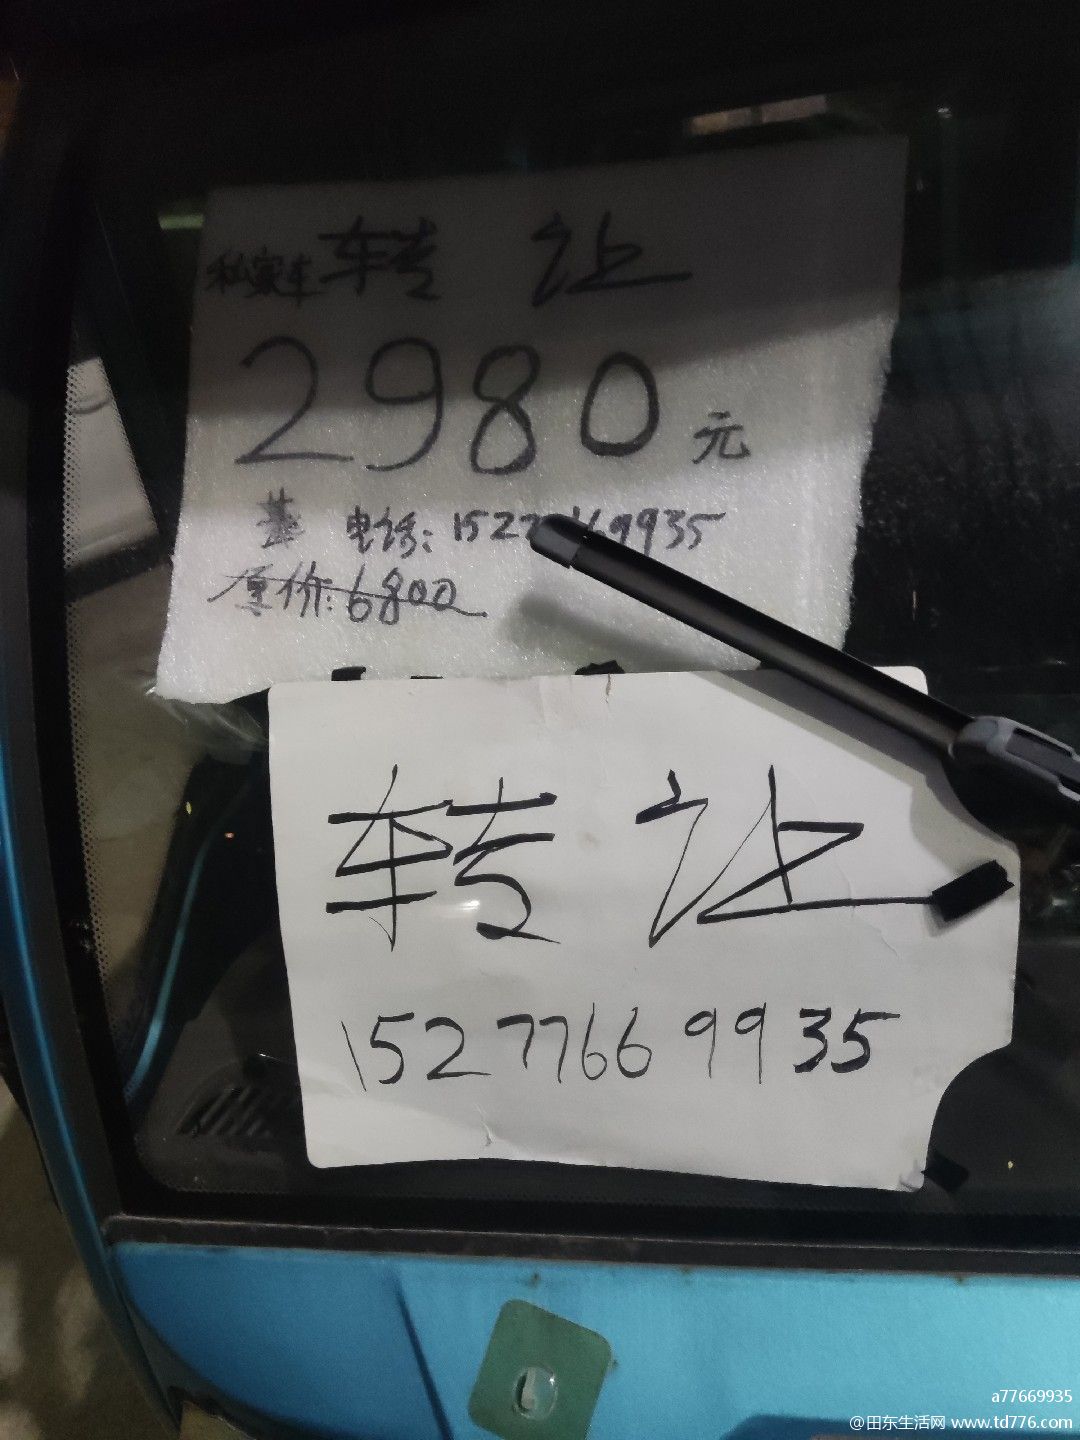 私家车转 让
2980元
电话:15277669935
原价:6800
转 让
15277669935
a77669935
@田东生活网 www.td776.com